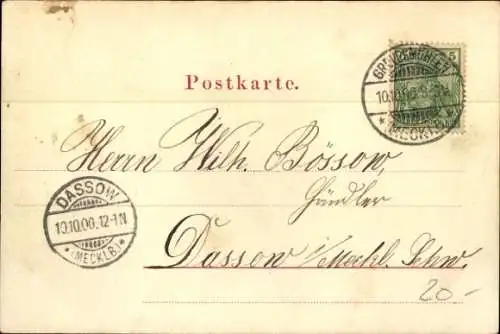 GREVESMÜHLEN
10.10.00.
* (MECKLB.) *
5
Postkarte.
Herrn Wilh. Bössow,
Händler
Dassow i/Meckl. Schw.
DASSOW
10.10.00.12-1N
* (MECKLB.) *
20-